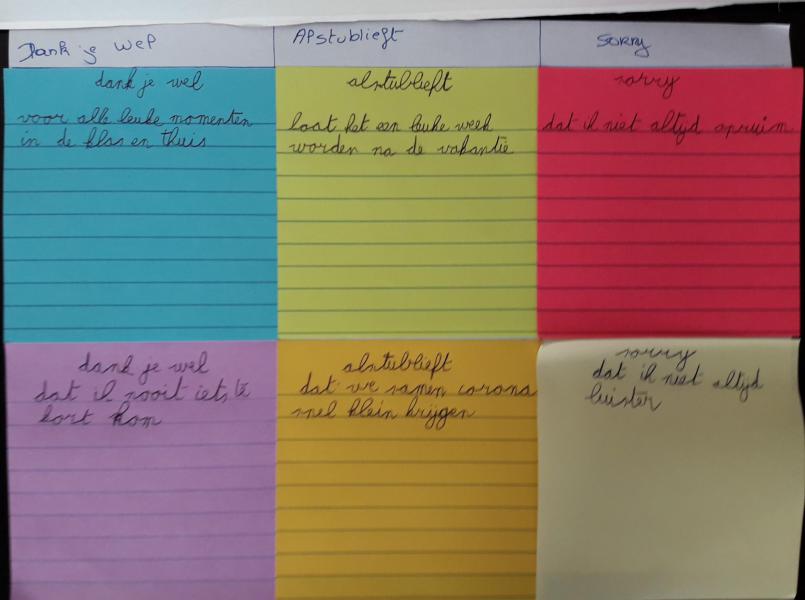 Dank je wel
Alstublieft
Sorry
dank je wel
voor alle leuke momenten
in de klas en thuis
alstublieft
laat het een leuke week
worden na de vakantie
sorry
dat ik niet altijd opruim
dank je wel
dat ik nooit iets te
kort kom
alstublieft
dat we samen corona
snel klein krijgen
sorry
dat ik niet altijd
luister